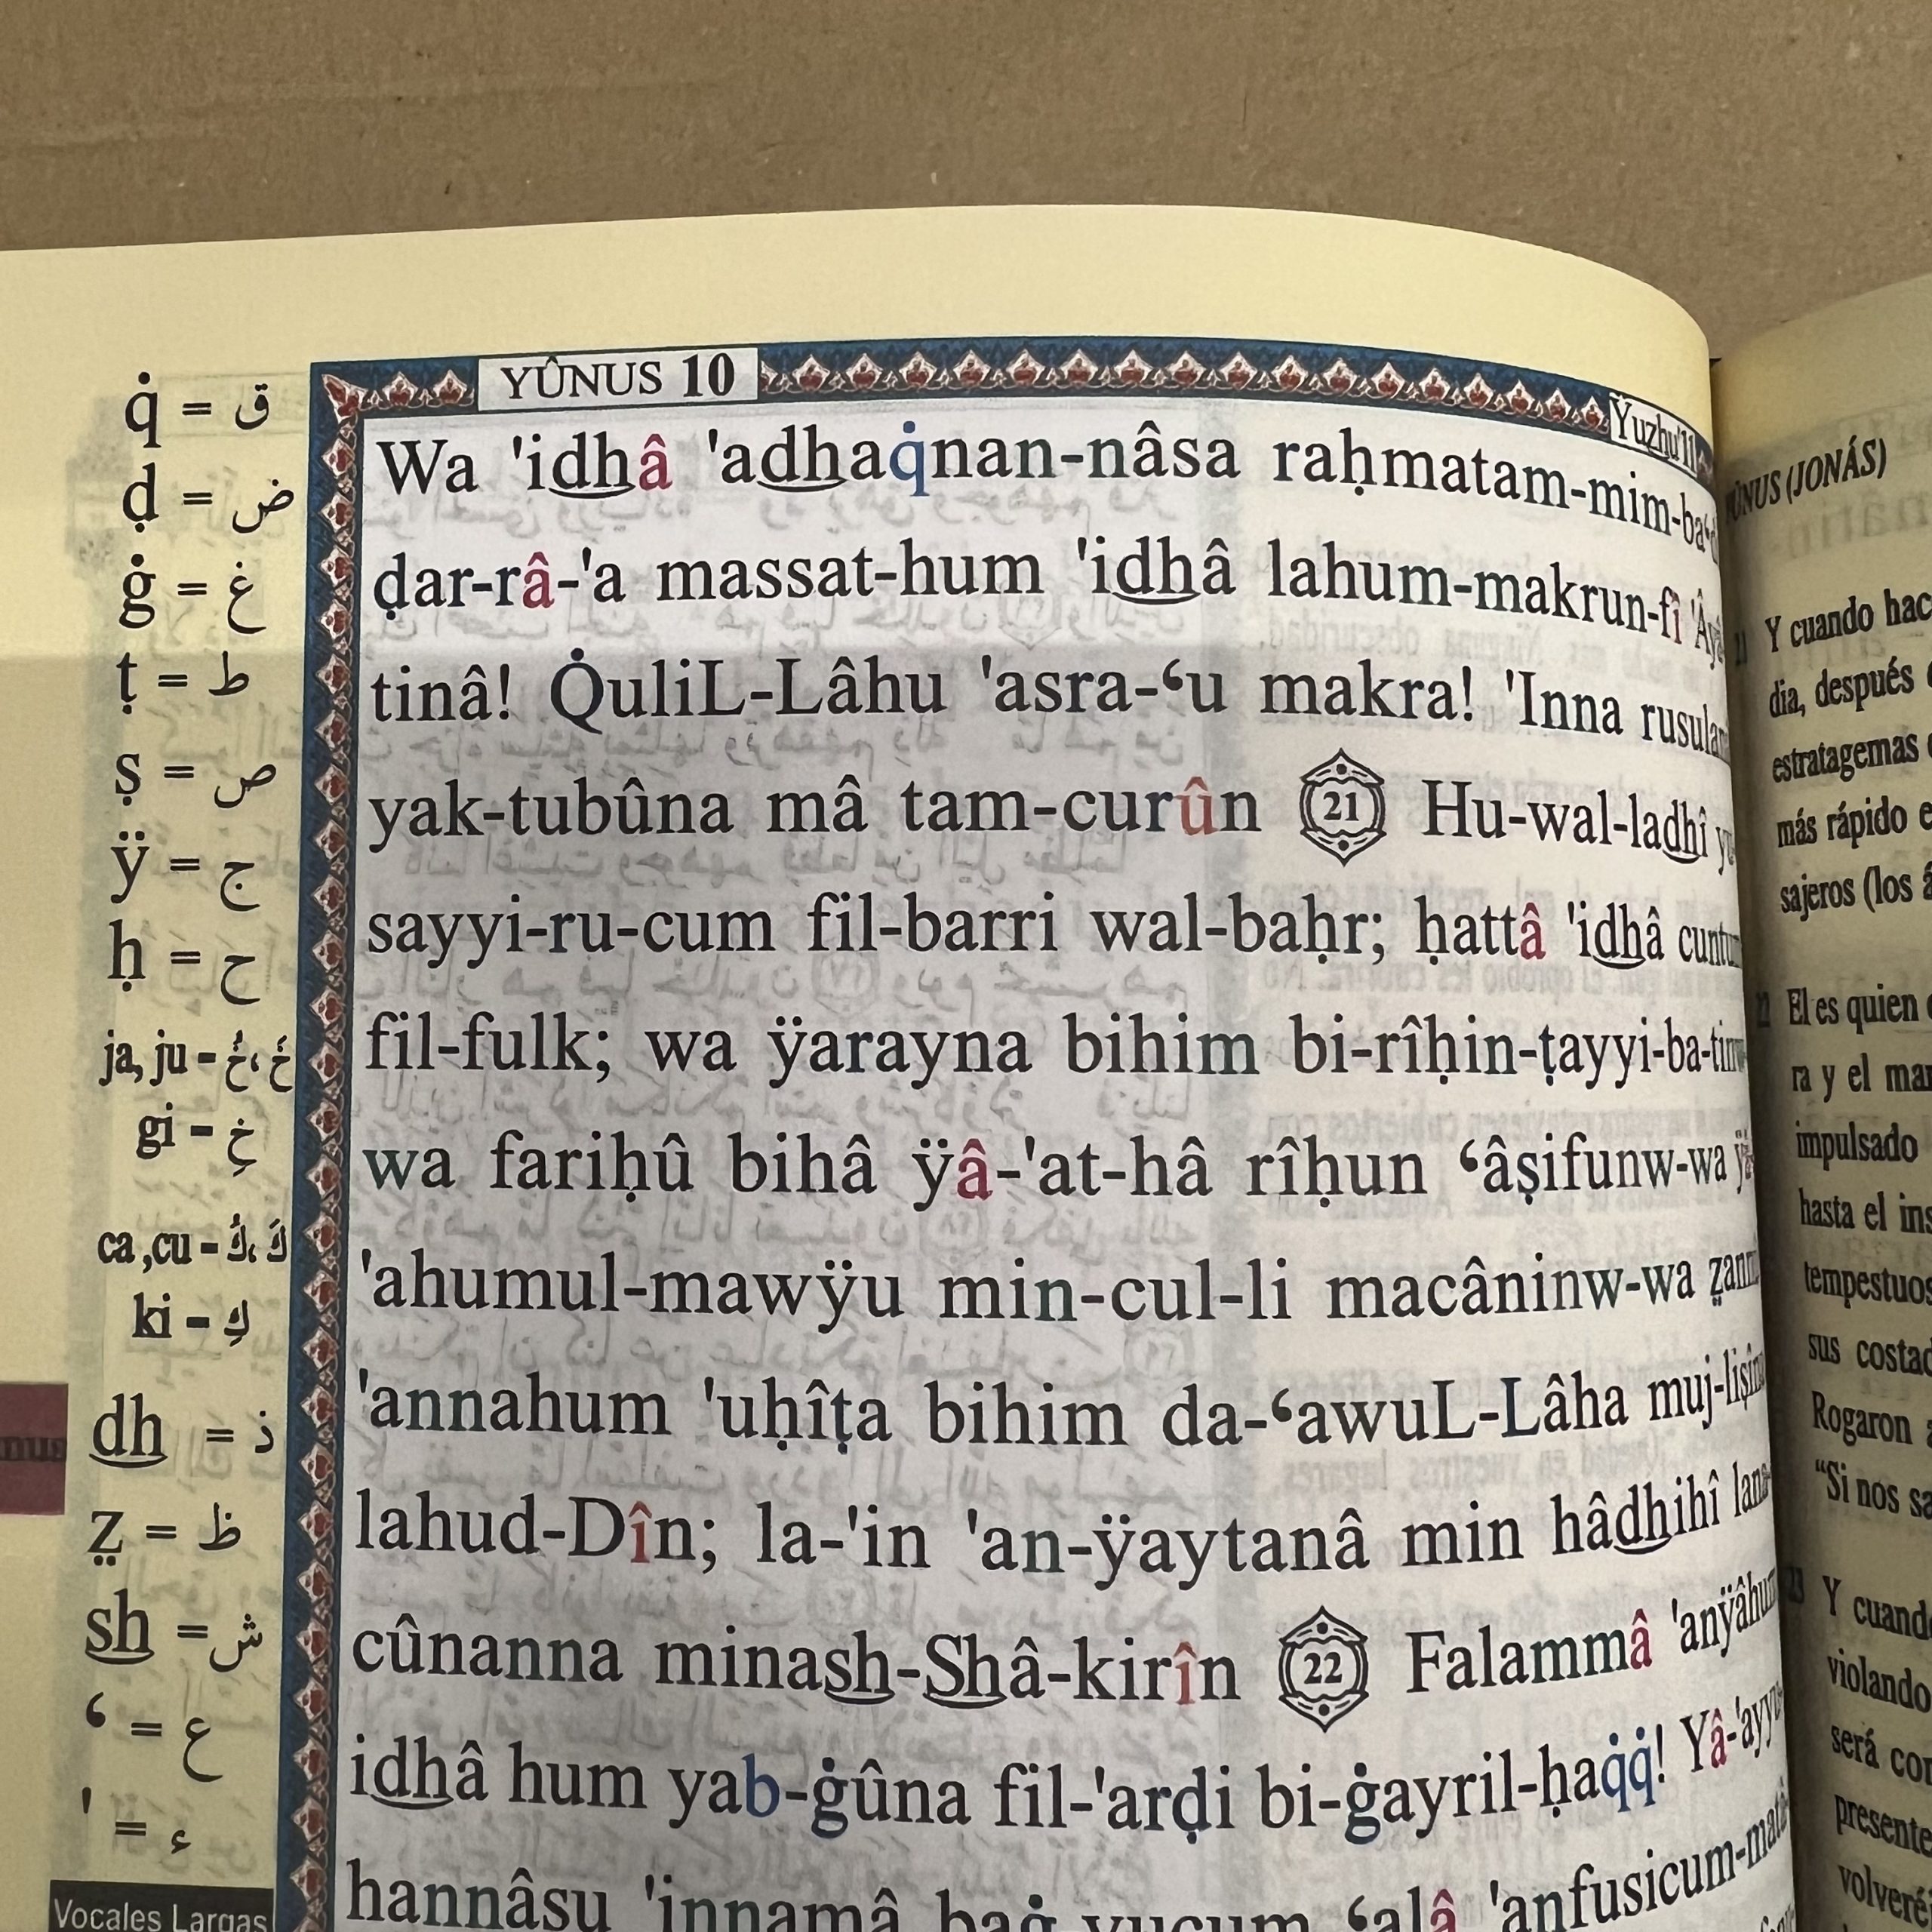 YÛNUS 10
Ÿuzhu'11
Wa 'idhâ 'adhaq̇nan-nâsa raḥmatam-mim-ba‘d
ḍar-râ-'a massat-hum 'idhâ lahum-makrun-fî 'Âyâ
tinâ! Q̇uliL-Lâhu 'asra-‘u makra! 'Inna rusulan
yak-tubûna mâ tam-curûn 21 Hu-wal-ladhî yu
sayyi-ru-cum fil-barri wal-baḥr; ḥattâ 'idhâ cuntum
fil-fulk; wa ÿarayna bihim bi-rîḥin-ṭayyi-ba-tinw
wa fariḥû bihâ ÿâ-'at-hâ rîḥun ‘âṣifunw-wa ÿâ
'ahumul-mawÿu min-cul-li macâninw-wa ẓann
'annahum 'uḥîṭa bihim da-‘awuL-Lâha muj-liṣîn
lahud-Dîn; la-'in 'an-ÿaytanâ min hâdhihî lana
cûnanna minash-Shâ-kirîn 22 Falammâ 'anÿâhum
idhâ hum yab-ġûna fil-'arḍi bi-ġayril-ḥaq̇q̇! Yâ-'ayyu
hannâsu 'innamâ baġ-yucum ‘alâ 'anfusicum-matâ
q̇ = ق
ḍ = ض
ġ = غ
ṭ = ط
ṣ = ص
ÿ = ج
ḥ = ح
ja, ju - خَ، خُ
gi - خِ
ca ,cu - كَ، كُ
ki - كِ
dh = ذ
ẓ = ظ
sh = ش
‘ = ع
' = ء
Vocales Largas
YÛNUS (JONÁS)
21 Y cuando hac
dia, después
estratagemas
más rápido e
sajeros (los á
22 El es quien
ra y el mar
impulsado
hasta el ins
tempestuos
sus costad
Rogaron a
“Si nos sa
23 Y cuando
violando
será con
presente
volveré